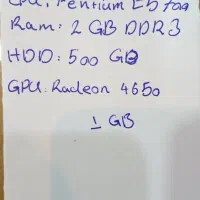 CPU: Pentium E5700
Ram: 2 GB DDR3
HDD: 500 GB
GPU: Radeon 4650
1 GB